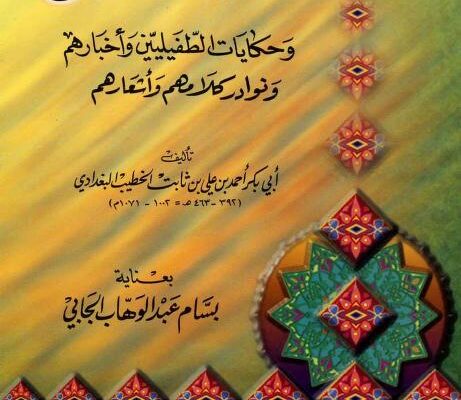 وَحكَايَات الطّفَيليّين وَأخبَارهم
وَنوادر كلامهم وَأشعَارهم
تأليف
أبي بكر أحمد بن علي بن ثابت الخطيب البغدادي
(٣٩٢ - ٤٦٣ هـ = ١٠٠٢ - ١٠٧١م)
بعناية
بسّام عَبد الوهّاب الجابي